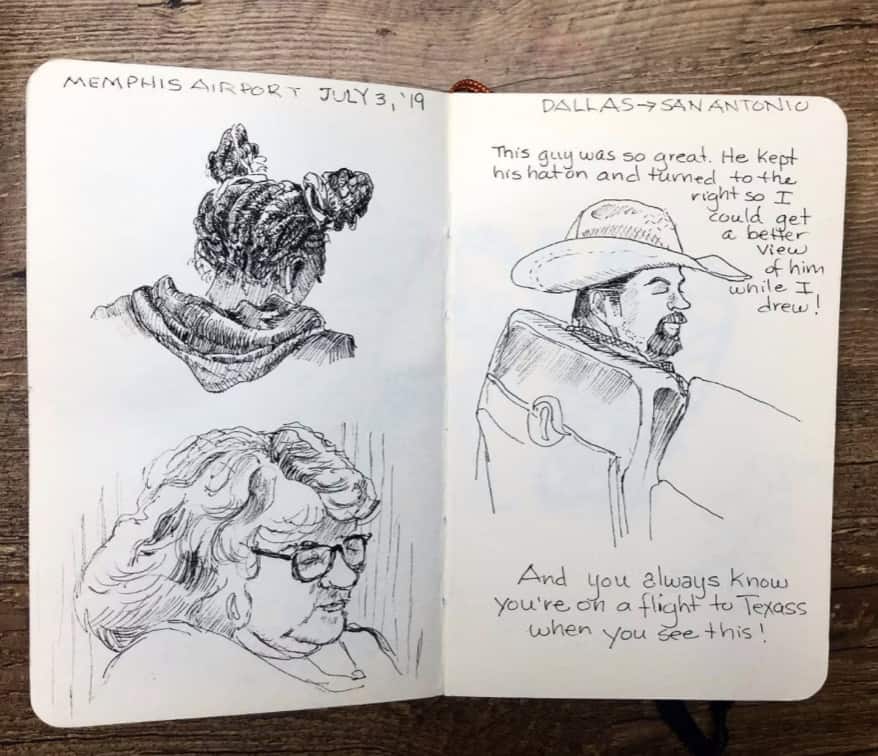 MEMPHIS AIRPORT JULY 3, '19
DALLAS→SAN ANTONIO
This guy was so great. He kept
his hat on and turned to the
right so I
could get
a better
view
of him
while I
drew!
And you always know
you're on a flight to Texass
when you see this!